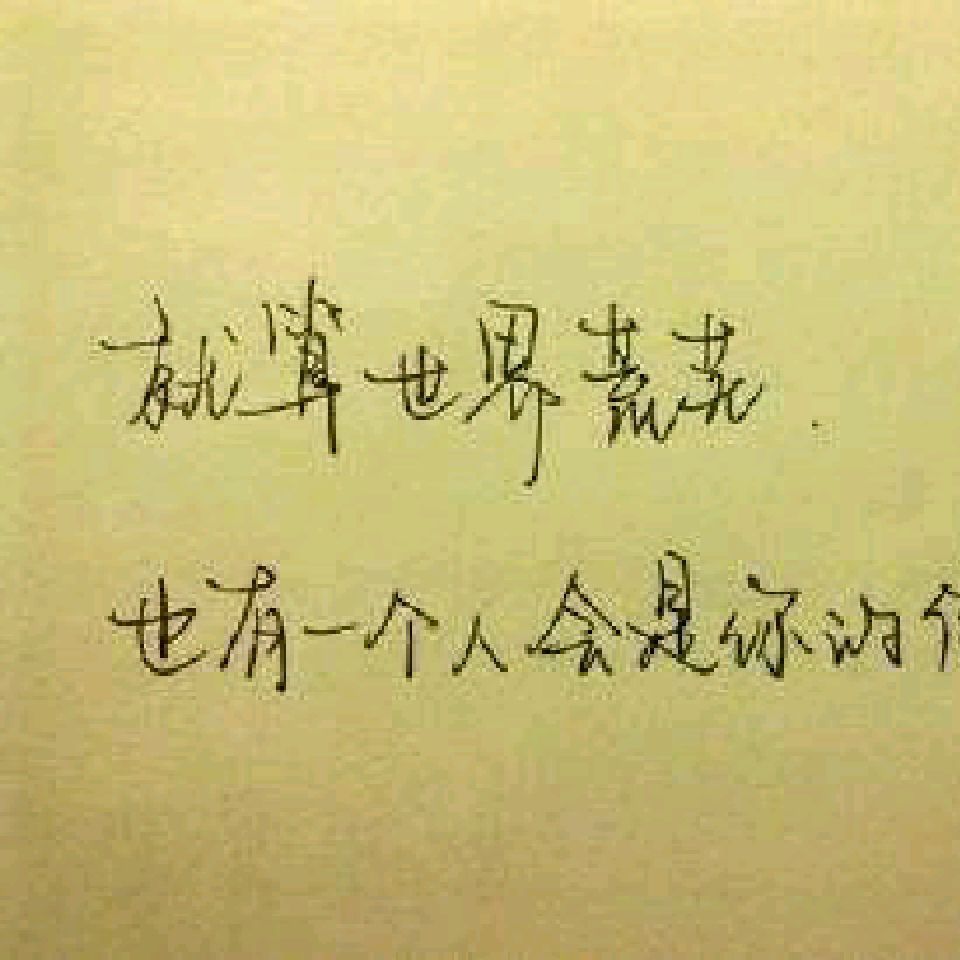 就算世界荒芜.
也有一个人会是你的